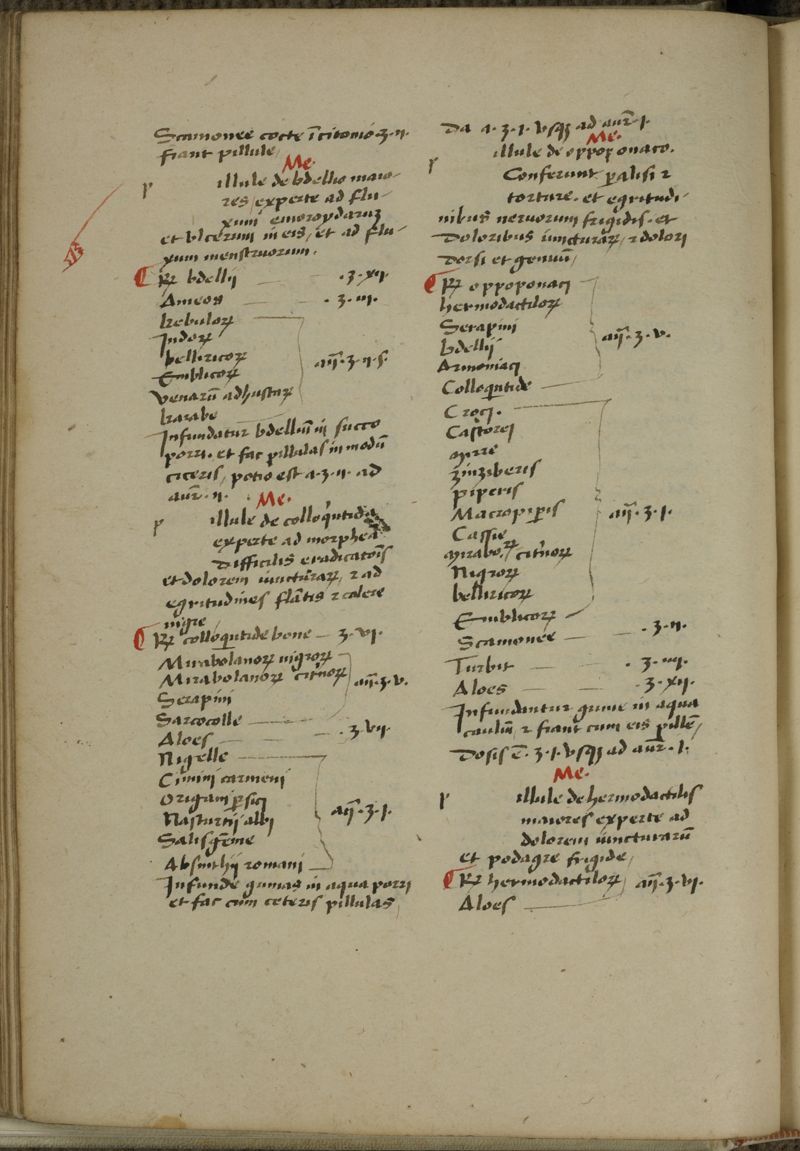 Scamonee cocte ī citonio ʒ · ij ·
fiant pillule /
Me ·
p illule de bdellio maio-
res / experte ad flu-
xum emoroydarum
et vlcerum in eis / et ad flu-
xum menstruorum ·
¶ Rꝝ bdellij · ʒ · xij ·
Ameos · ʒ · iij ·
kebuloꝝ
Indoꝝ
belliricoꝝ
Emblicoꝝ aā · ʒ · ij · s ·
venarū adhustaꝝ
karabe
Infundatur bdelliū in succo
porri · et fac pillulas in modū
ciceris / potio est a · ʒ · ij · ad
aur̄ · ij ·
Me ·
p illule de colloquintida
experte ad morpheā
difficilis eradicatōis
et dolorem iuncturaꝝ / ⁊ ad
egritudines flātis ⁊ colere
nigre /
¶ Rꝝ colloqūtide bone ʒ · vj ·
Mirabolanoꝝ nigroꝝ
Mirabolanoꝝ citrīoꝝ aā · ʒ · v ·
Serapini
Sarcocolle
Aloes · ʒ · vij ·
Nigelle
Cimini carmeni
Origani persici
Nasturtij albi aā · ʒ · j ·
Salis gēme
Absinthij romani
Infunde gumas in aqua porri
et fac cum ceteris pillulas /
Da a · ʒ · j · vsqꝫ ad aur̄ · j ·
Me ·
p illule de oppoponaco ·
Conferunt ꝑalisi ⁊
torture · et egritudi-
nibus neruorum frigidis · et
doloribus iuncturaꝝ / ⁊ dolori
dorsi et genuū /
¶ Rꝝ oppoponaci
hermodactiloꝝ
Serapini
bdellij aā · ʒ · v ·
Armoniaci
Colloquintide
Croci ·
Castorei
mirre
zinziberis
piperis
Macropiꝑis aā · ʒ · j ·
Cassie
mirabo ꝝ citrīoꝝ
Nigroꝝ
belliricoꝝ
Emblicoꝝ
Scamonee · ʒ · ij ·
Turbit · ʒ · iiij ·
Aloes · ʒ · xij ·
Infundantur gume in aqua
caulium ⁊ fiant cum eis pillule /
Dosis ē · ʒ · j · vsqꝫ ad aur̄ · j ·
Me ·
p illule de hermodactilis
maiores experte ad
dolorem iuncturarū
et podagre frigide /
¶ Rꝝ hermodactiloꝝ aā · ʒ · vj ·
Aloes